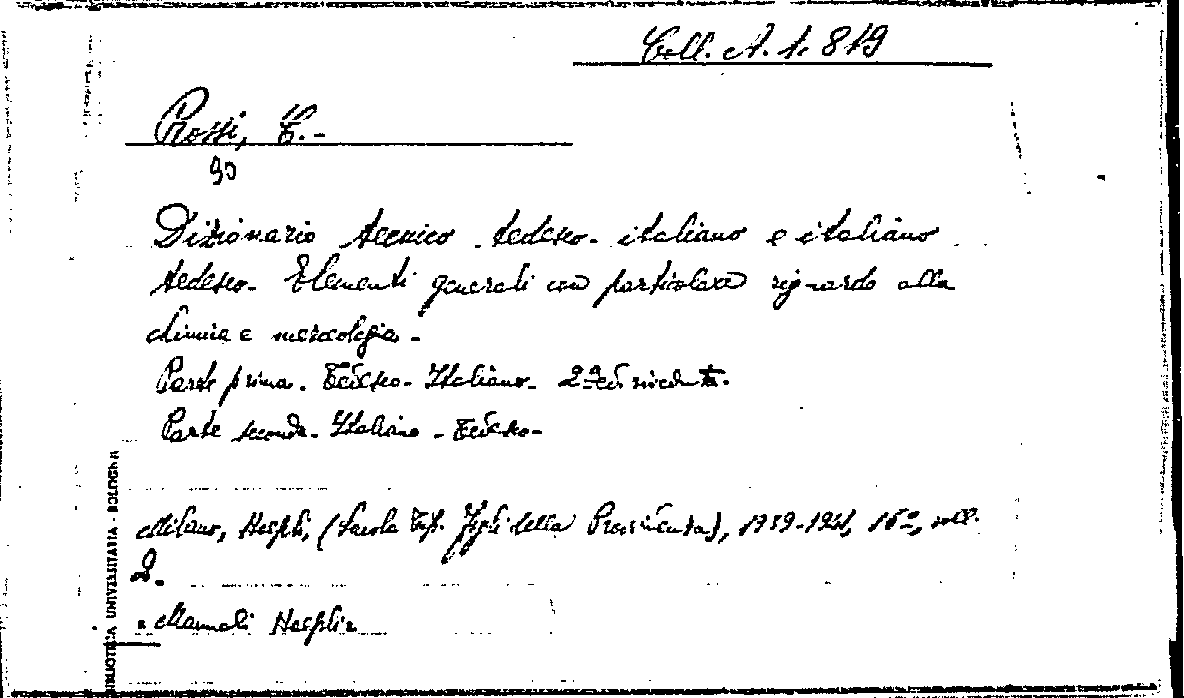 Coll. A. 1. 819
Rossi, E.-
90
Dizionario tecnico tedesco-italiano e italiano
tedesco- Elementi generali con particolare riguardo alla
chimica e merceologia.-
Parte prima. Tedesco-Italiano- 2ª ed. riveduta.
Parte seconda- Italiano-Tedesco-
Milano, Hoepli, (Scuola Tip. Figli della Provvidenza), 1939-1941, 16°, voll.
2.
"Manuali Hoepli"
BIBLIOTECA UNIVERSITARIA - BOLOGNA